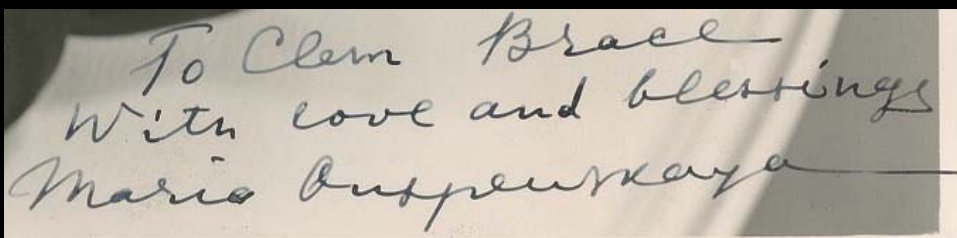 To Clem Brace
With love and blessings
Maria Ouspenskaya